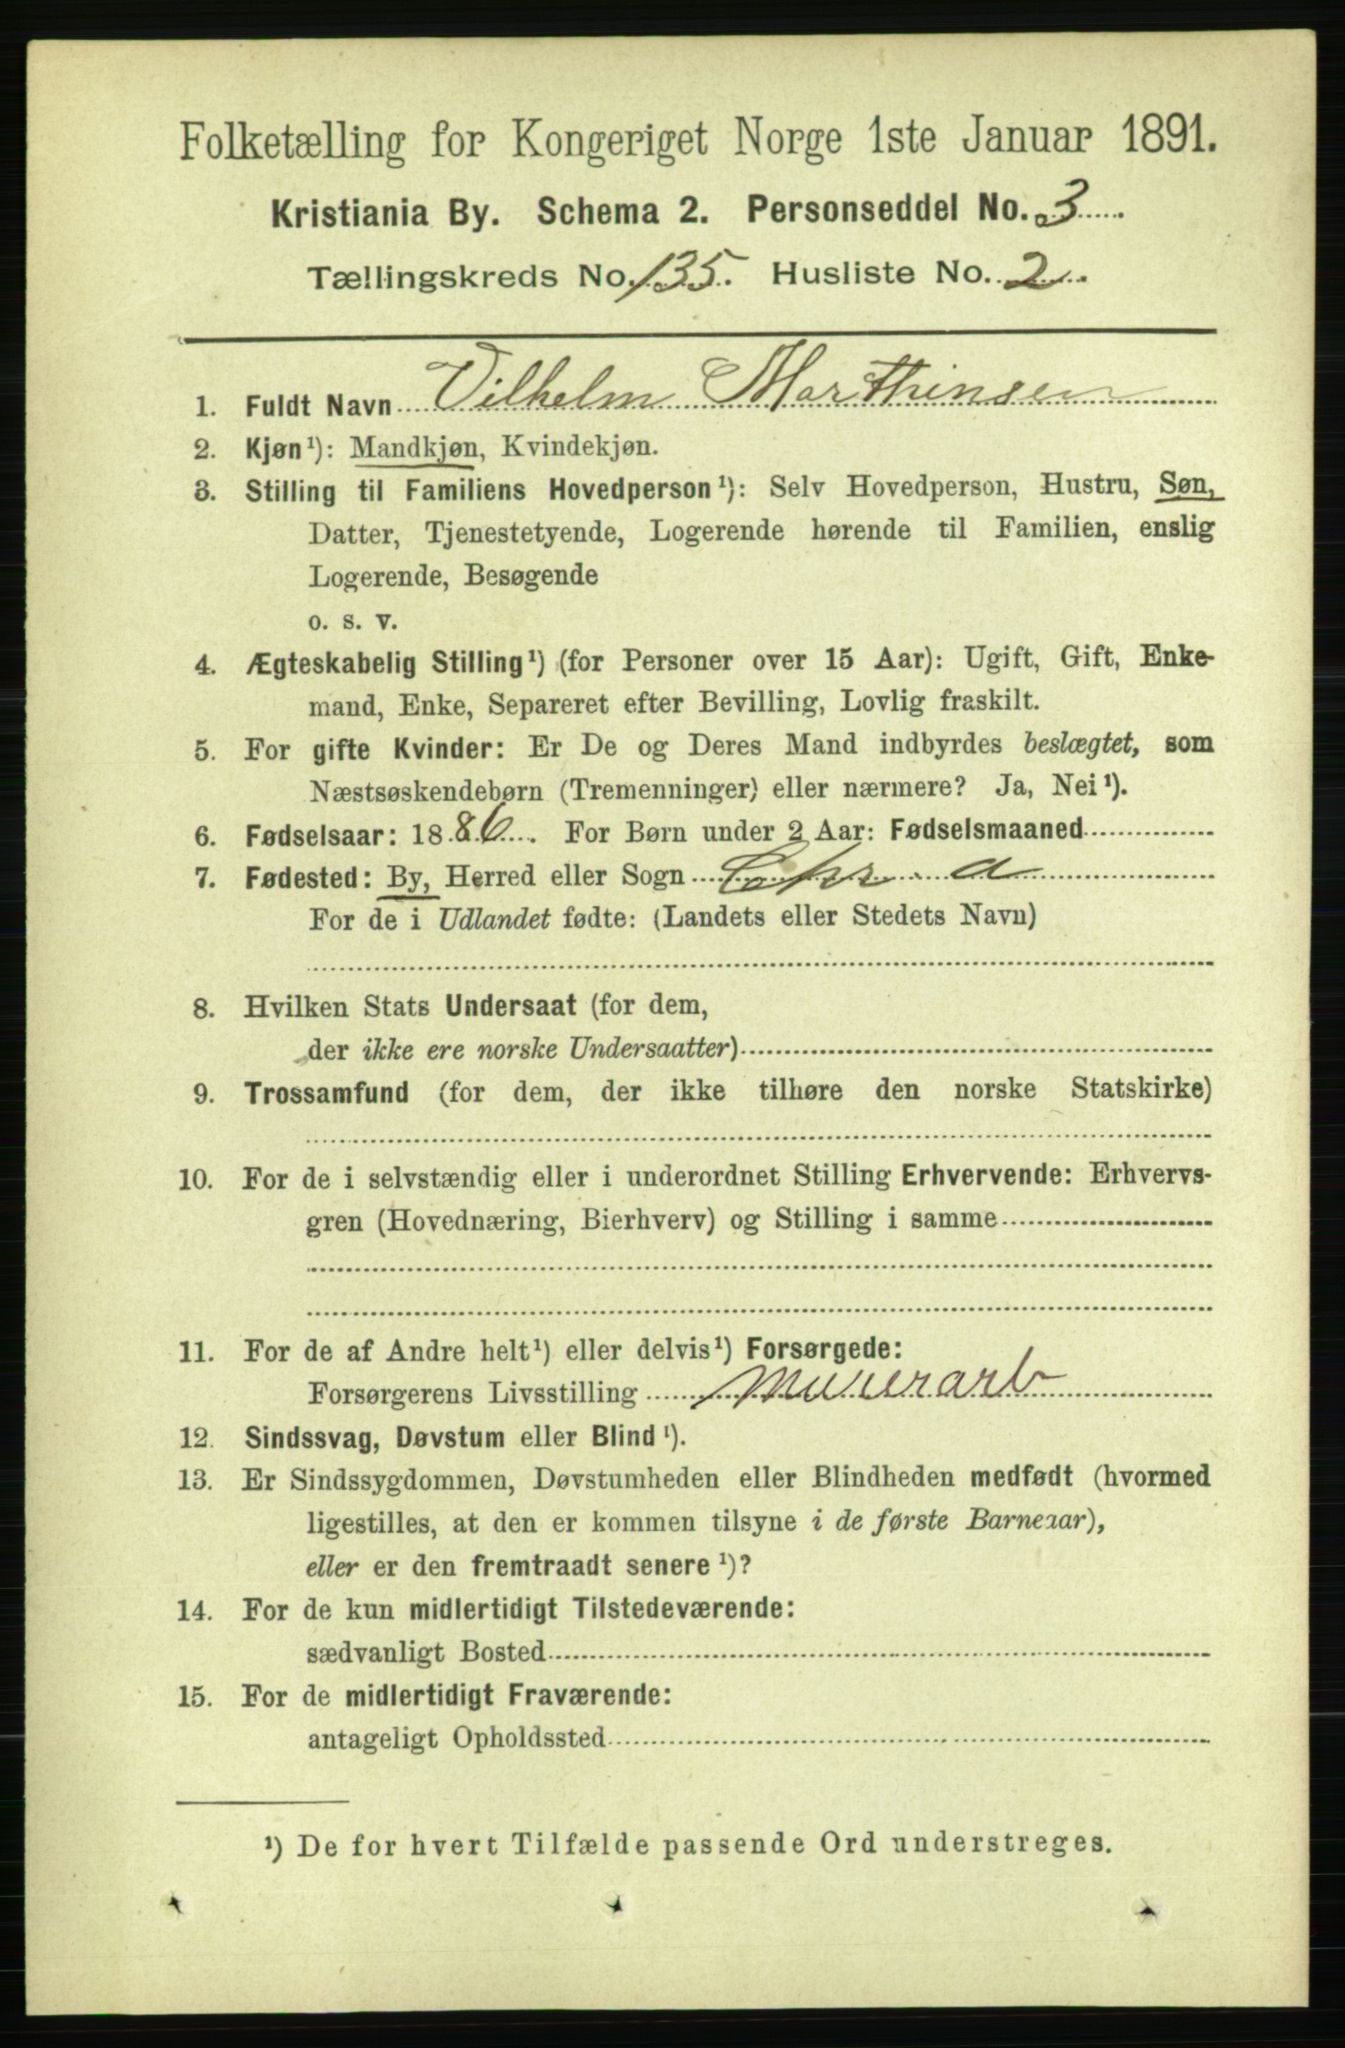 Folketælling for Kongeriget Norge 1ste Januar 1891.
Kristiania By. Schema 2. Personseddel No. 3
Tællingskreds No. 135. Husliste No. 2
1. Fuldt Navn Vilhelm Marthinsen
2. Kjøn¹): Mandkjøn, Kvindekjøn.
3. Stilling til Familiens Hovedperson¹): Selv Hovedperson, Hustru, Søn,
Datter, Tjenestetyende, Logerende hørende til Familien, enslig
Logerende, Besøgende
o. s. v.
4. Ægteskabelig Stilling¹) (for Personer over 15 Aar): Ugift, Gift, Enke-
mand, Enke, Separeret efter Bevilling, Lovlig fraskilt.
5. For gifte Kvinder: Er De og Deres Mand indbyrdes beslægtet, som
Næstsøskendebørn (Tremenninger) eller nærmere? Ja, Nei¹).
6. Fødselsaar: 1886. For Børn under 2 Aar: Fødselsmaaned
7. Fødested: By, Herred eller Sogn Chr.a
For de i Udlandet fødte: (Landets eller Stedets Navn)
8. Hvilken Stats Undersaat (for dem,
der ikke ere norske Undersaatter)
9. Trossamfund (for dem, der ikke tilhøre den norske Statskirke)
10. For de i selvstændig eller i underordnet Stilling Erhvervende: Erhvervs-
gren (Hovednæring, Bierhverv) og Stilling i samme
11. For de af Andre helt¹) eller delvis¹) Forsørgede:
Forsørgerens Livsstilling Murerarb
12. Sindssvag, Døvstum eller Blind¹).
13. Er Sindssygdommen, Døvstumheden eller Blindheden medfødt (hvormed
ligestilles, at den er kommen tilsyne i de første Barneaar),
eller er den fremtraadt senere¹)?
14. For de kun midlertidigt Tilstedeværende:
sædvanligt Bosted
15. For de midlertidigt Fraværende:
antageligt Opholdssted
¹) De for hvert Tilfælde passende Ord understreges.